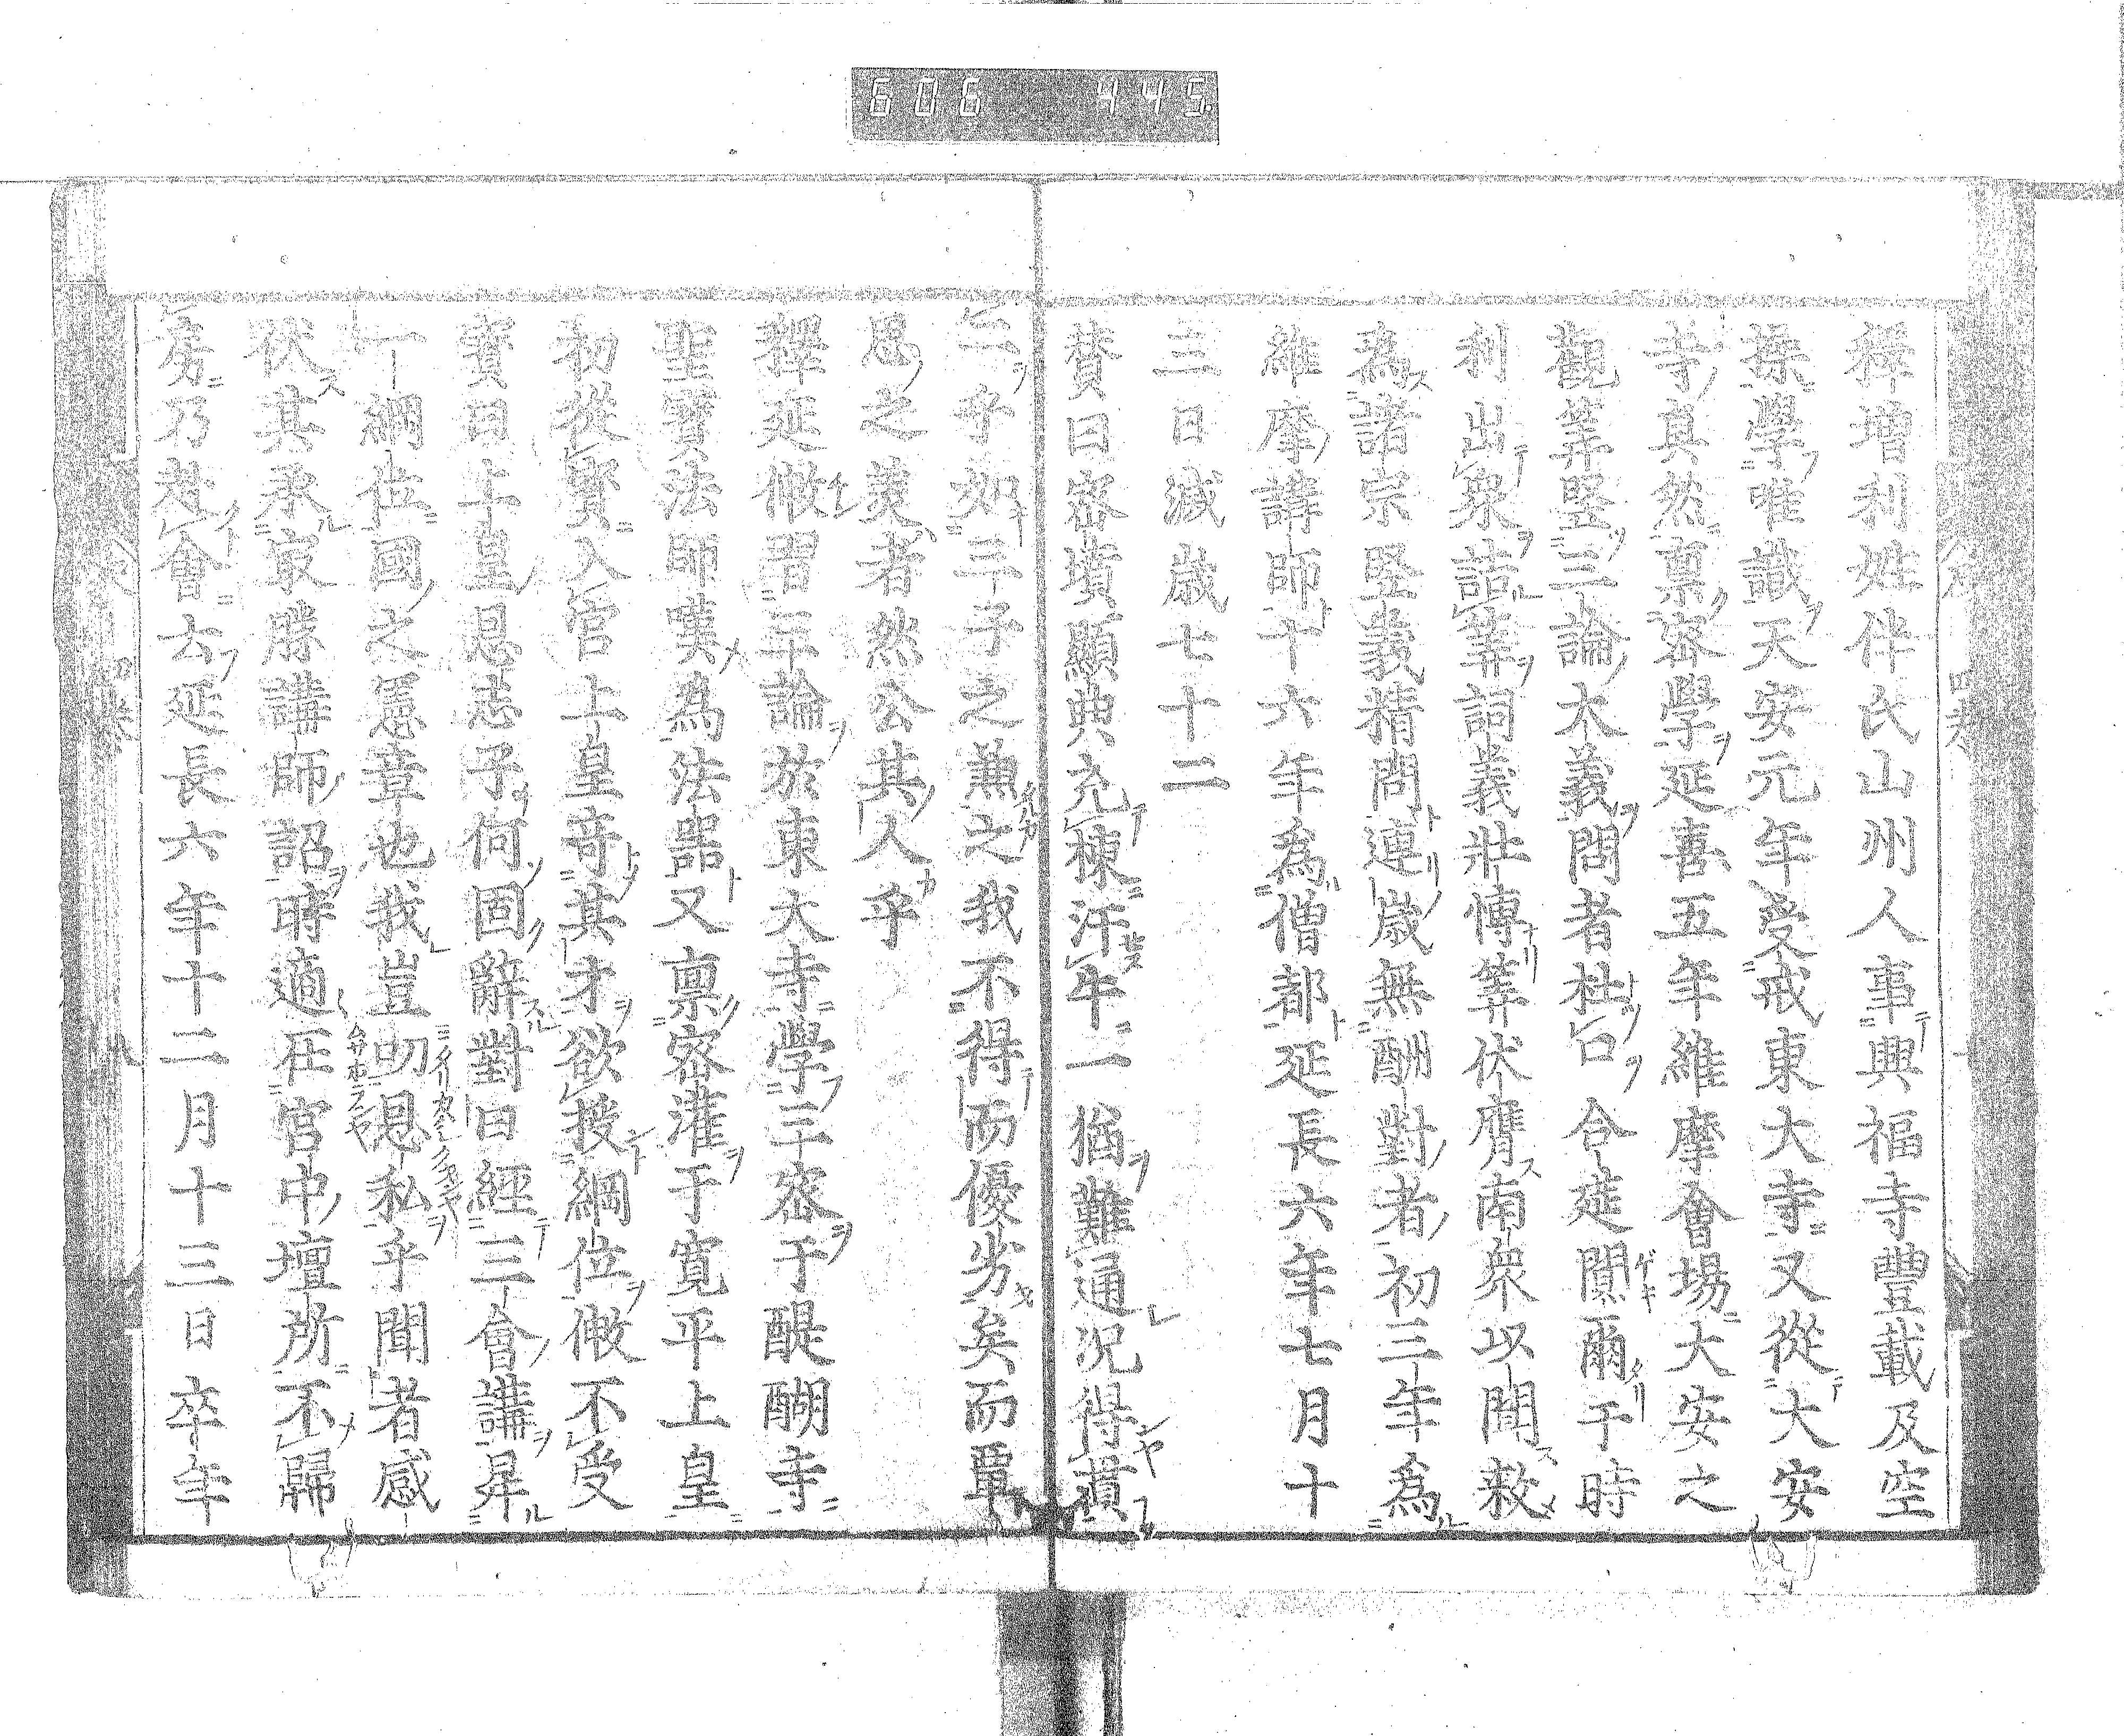 606 445
釋增利姓伴氏山州人事興福寺豐載及空
操學唯識天安元年受戒東大寺又從大安
寺真然稟密學延喜五年維摩會場大安之
觀筭竪三論大義問者杜口合筵闃爾于時
利出衆詰筭詞義壯愽筭伏膺南衆以聞敕
爲諸宗竪義精問連歳無酬對者初三年爲
維摩講師十六年爲僧都延長六年七月十
三日滅歳七十二
賛曰密墳顯典充棟汗牛一猶難通况得蕆
二乎如三子之兼之我不得而優劣矣而單
思之羙者然公其人乎
釋延儆習三論於東大寺學三密于醍醐寺
聖寳法師嘆爲法噐又稟密灌于寛平上皇
初從寳入宫上皇竒其才欲授綱位儆不受
寳曰上皇恩志子何固辭對曰經三會講昇
一綱位國之憲章也我豈叨恩私乎聞者感
伏其承㝡勝講師詔時適在宫中壇所不歸
房乃赴會云延長六年十二月十三日卒年